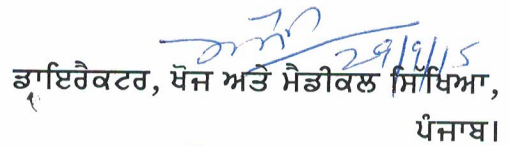 29/9/15
ਡਾਇਰੈਕਟਰ, ਖੋਜ ਅਤੇ ਮੈਡੀਕਲ ਸਿੱਖਿਆ,
ਪੰਜਾਬ।